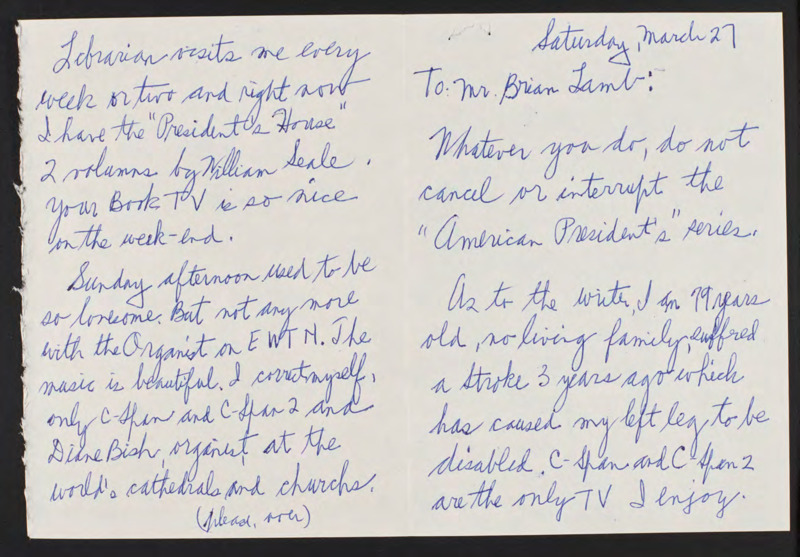 Saturday, March 27
To: Mr. Brian Lamb:
Whatever you do, do not
cancel or interrupt the
"American President's" series.
As to the writer, I am 79 years
old, no living family, suffered
a stroke 3 years ago which
has caused my left leg to be
disabled. C-Span and C-Span 2
are the only TV I enjoy.
Librarian visits me every
week or two and right now
I have the "President's House"
2 volumns by William Seale.
Your Book TV is so nice
on the week-end.
Sunday afternoon used to be
so lonesome. But not any more
with the Organist on EWTN. The
music is beautiful. I correct myself,
only C-Span and C-Span 2 and
Diane Bish, organist, at the
world's cathedrals and churchs.
(please, over)